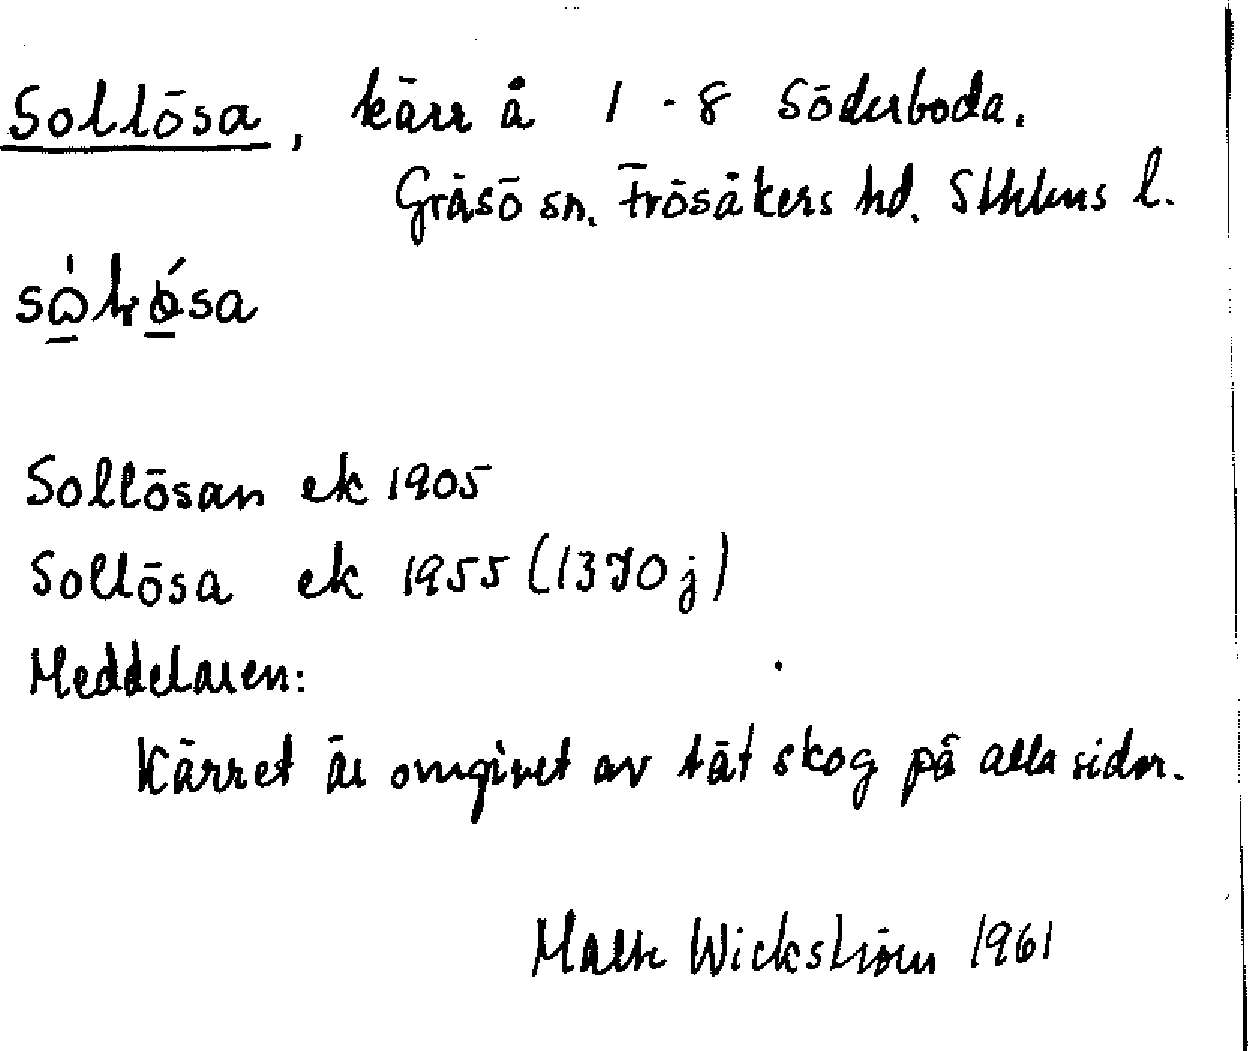 Sollösa, kärr å 1 - 8 Söderboda.
Gräsö sn. Frösåkers hd. Sthlms l.
Sollösan ek 1905
Sollösa ek 1955 (1370j)
Meddelaren:
Kärret är omgivet av tät skog på alla sidor.
Wickström 1961